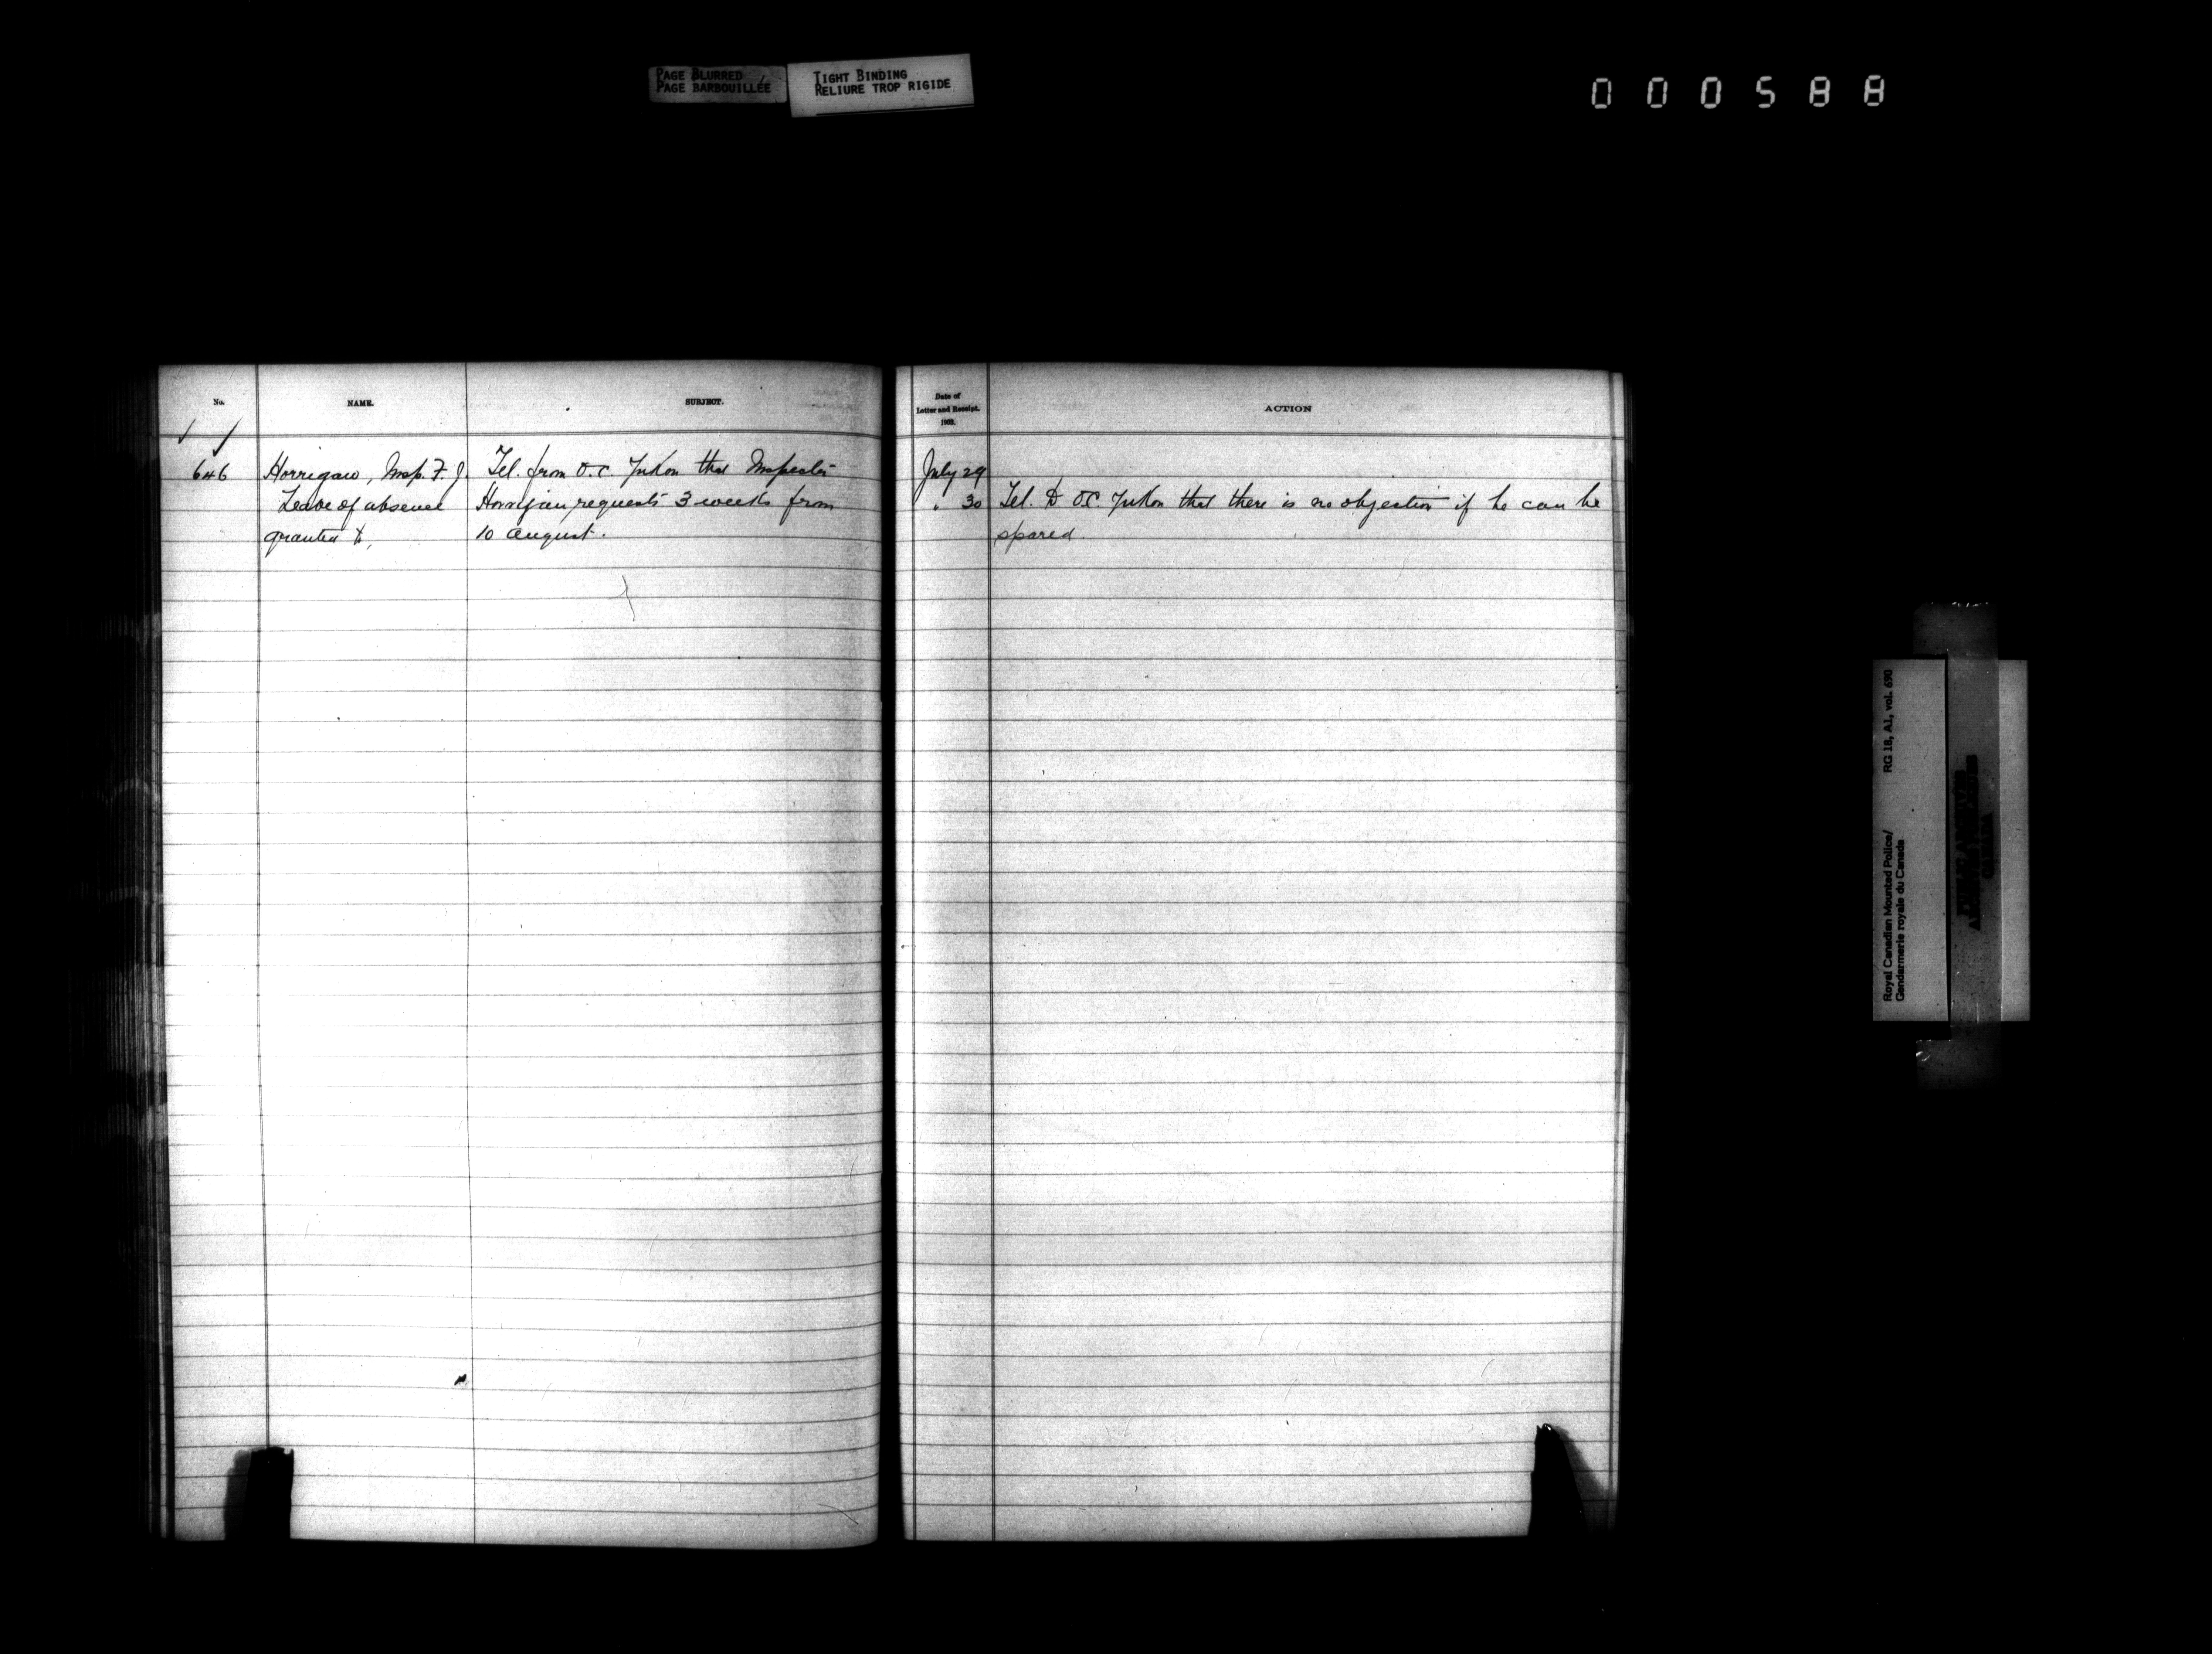 PAGE BLURRED
PAGE BARBOUILLÉE
TIGHT BINDING
RELIURE TROP RIGIDE
000588
No. NAME. SUBJECT.
Date of
Letter and Receipt.
ACTION
646 Horrigan, Insp. F. J. Tel. from O.C. Yukon that Inspector July 29
Leave of absence Horrigan requests 3 weeks from " 30 Tel. to O.C. Yukon that there is no objection if he can be
granted to, 10 August. spared.
Royal Canadian Mounted Police/ RG 18, A1, vol. 690
Gendarmerie royale du Canada